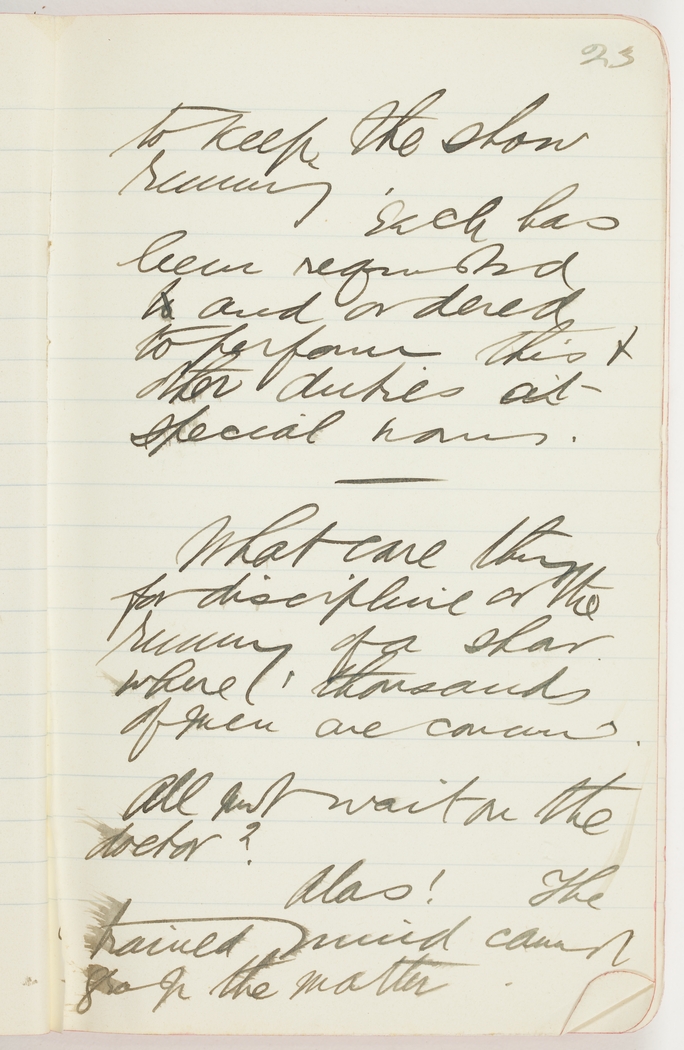 23
to keep the show
running Each has
been requested
to and ordered
to perform this +
other duties at
special hours.
What care they
for discipline or the
running of a show
where thousands
of men are concerned.
All must wait on the
doctor?
Alas! The
trained mind cannot
grasp the matter